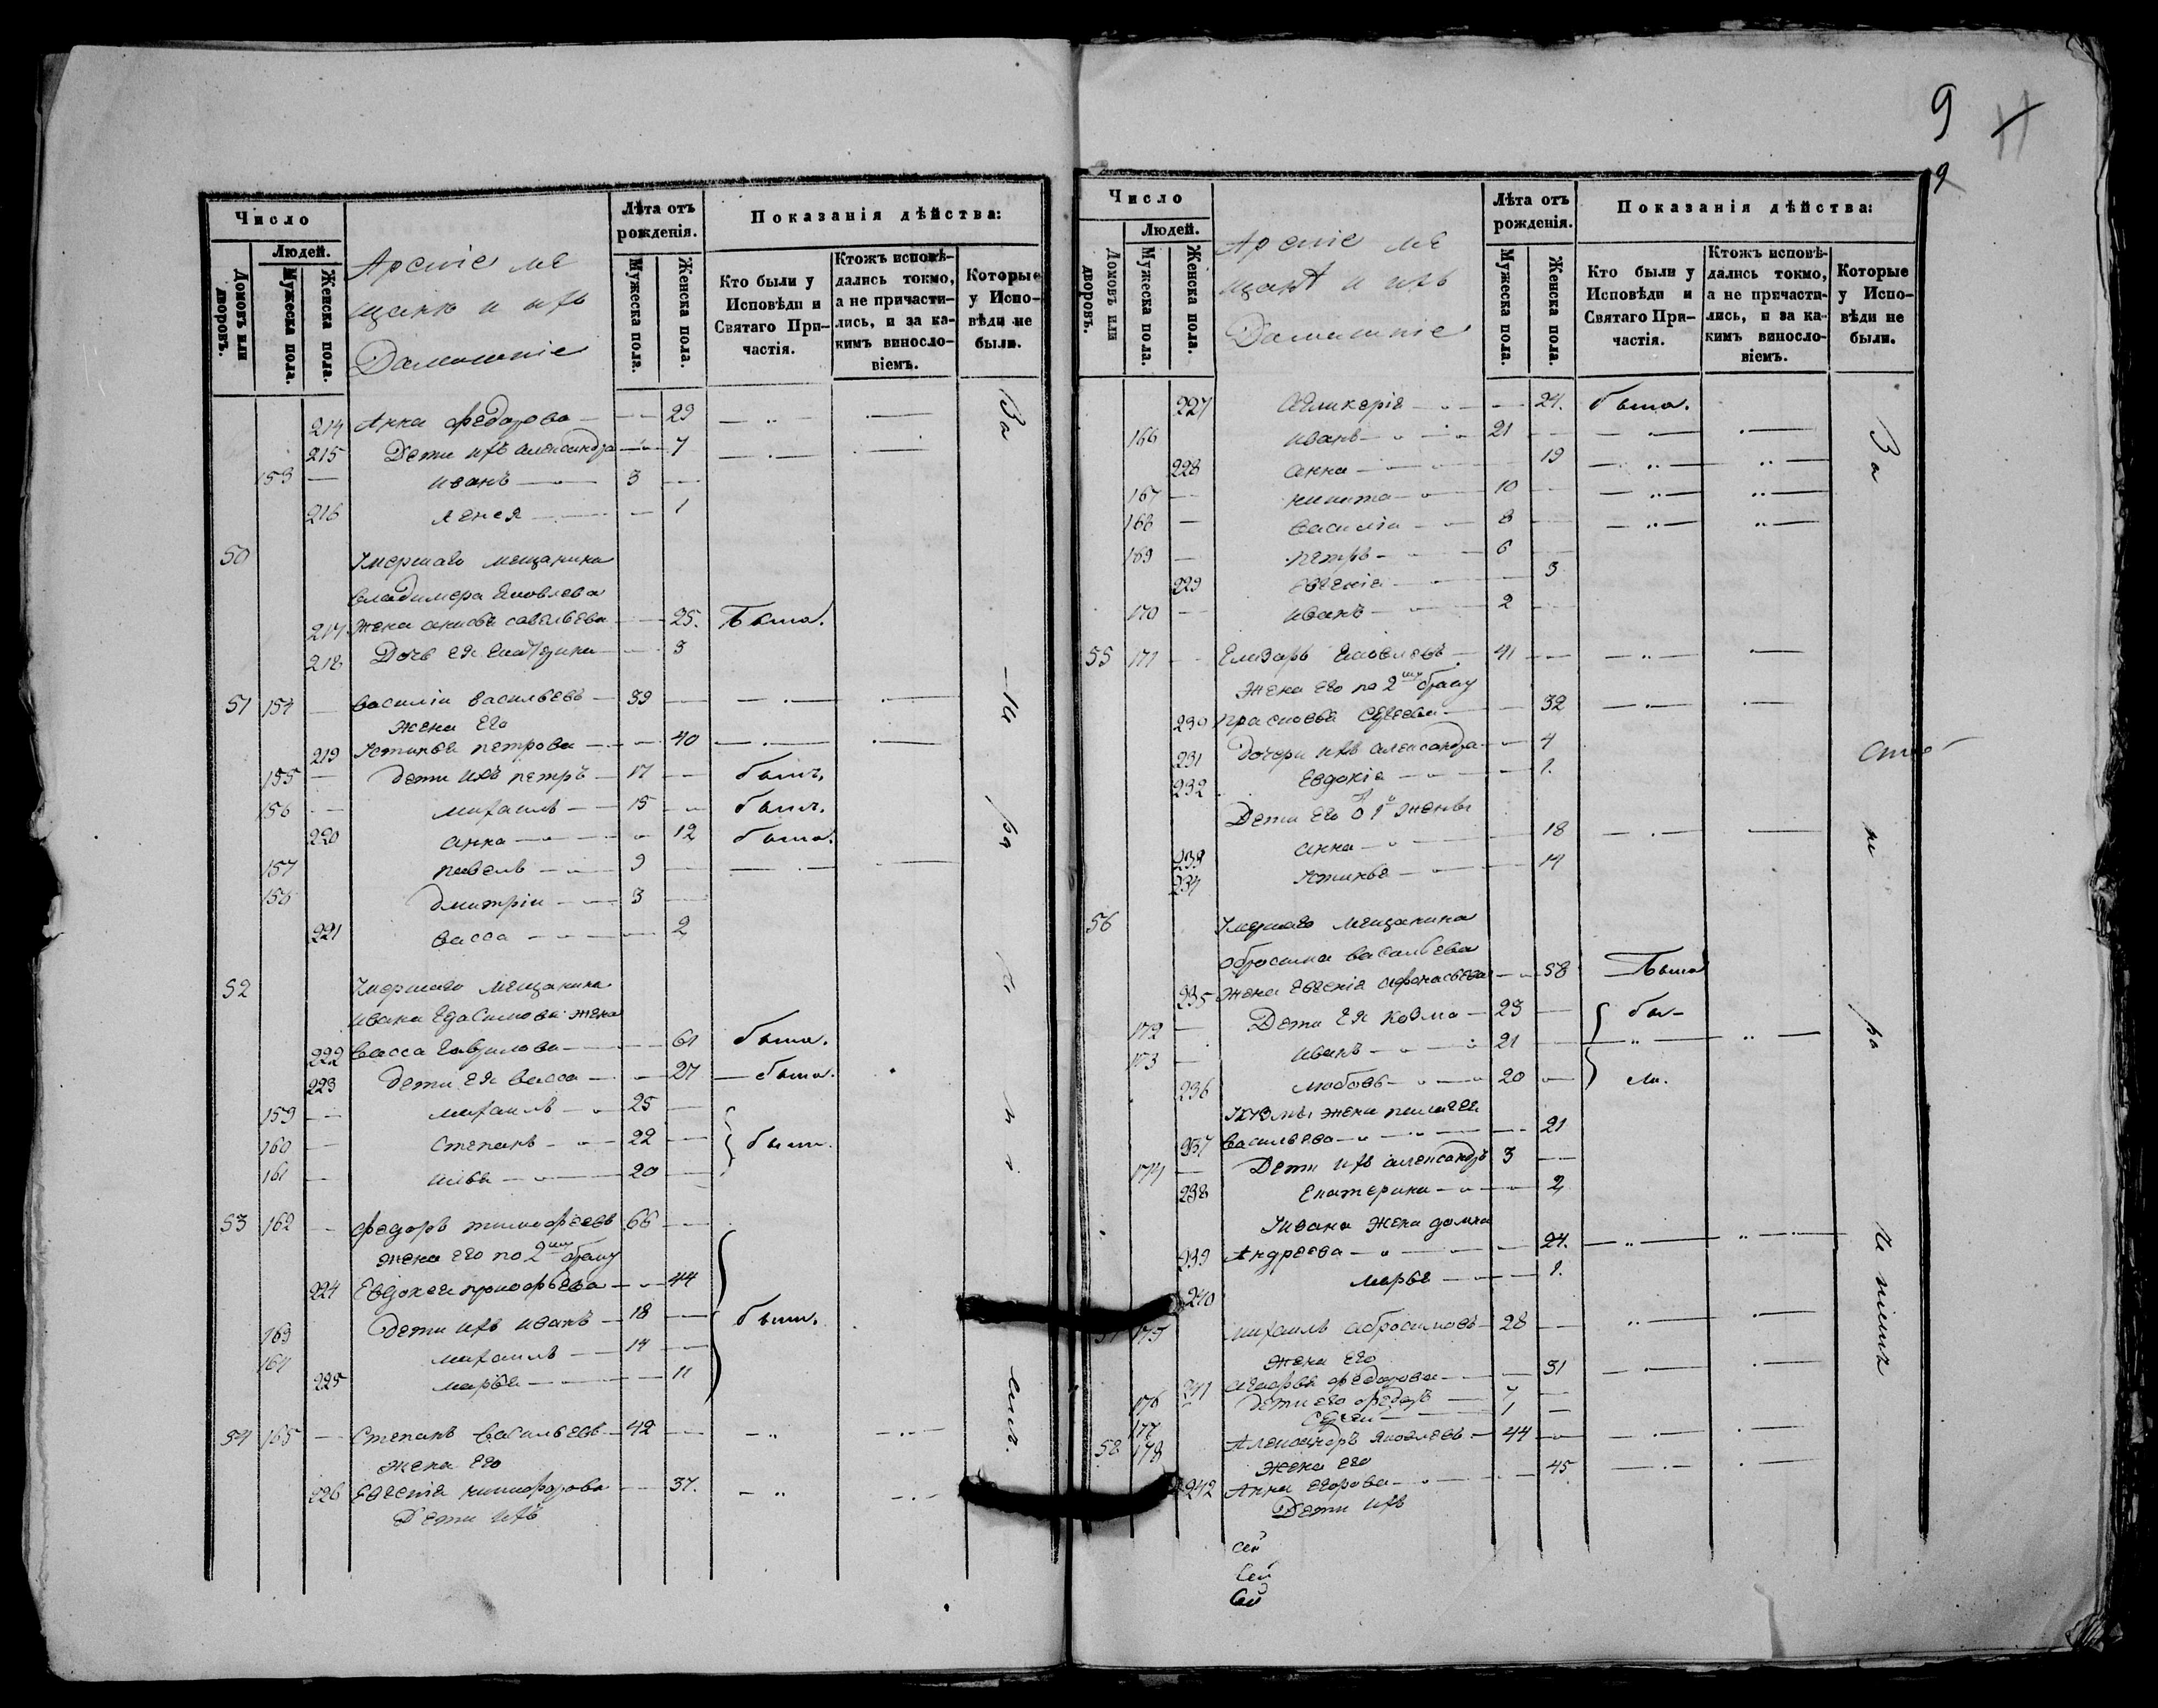 9
9
Число
Лѣта отъ рожденія.
Показанія дѣйства:
Людей.
Домовъ или дворовъ.
Мужеска пола.
Женска пола.
Мужеска пола.
Женска пола.
Кто были у Исповѣди и Святаго Причастія.
Ктожъ исповѣдались токмо, а не причастились, и за какимъ винословіемъ.
Которые у Исповѣди не были.
ме
щане и ихъ
Домашніе
214 Анна Федорова 29
215 Дети ихъ александра 7
153 иванъ 3
216 1
50 Умершаго мещанина
владимера Яковлева
217 Жена савельева 25. Была.
218 Дочь ея Екатерина 3
51 154 василіи васильевъ 39
жена его
219 Устинья петрова 40
155 дети ихъ петръ 17 былъ.
156 михаилъ 15 былъ.
220 анна 12 была.
157 павелъ 9
158 дмитріи 3
221 васса 2
52 Умершаго мещанина
ивана Герасимова жена
222 васса гаврилова 61 была.
223 дети ея васса 27 была.
159 михаилъ 25
160 степанъ 22 были.
161 20
53 162 федоръ тимофеевъ 66
жена его по 2му браку
224 Евдокея прокофьева 44
163 дети ихъ иванъ 18 были.
164 михаилъ 14
225 марья 11
54 165 Степанъ васильевъ 42
жена его
226 Евгенія никифорова 37.
Дети ихъ
Число
Лѣта отъ рожденія.
Показанія дѣйства:
Людей.
Домовъ или дворовъ.
Мужеска пола.
Женска пола.
Мужеска пола.
Женска пола.
Кто были у Исповѣди и Святаго Причастія.
Ктожъ исповѣдались токмо, а не причастились, и за какимъ винословіемъ.
Которые у Исповѣди не были.
ме
щане и ихъ
Домашніе
227 24. была.
166 иванъ 21
228 анна 19
167 никита 10
168 василіи 8
169 петръ 6
229 евгенія 3
170 иванъ 2
55 171 Елизаръ Яковлевъ 41
Жена его по 2му браку
230 прасковья 32
231 дочери ихъ александра 4
232 Евдокія 1.
Дети его 1й жены
233 анна 18
234 Устинья 14
56 Умершаго мещанина
обросима васильева
235 жена евгенія афонасьева 58 Была
172 Дети ея козма 23 бы-
173 иванъ 21
236 любовь 20 ли.
Кузмы жена пелагея
237 васильева 21
174 Дети ихъ александръ 3
238 Екатерина 2
Ивана жена домна
239 Андреева 24.
240 марья 1.
57 175 михаилъ абросимовъ 28
жена его
241 федорова 31
176 дети его федоръ 7
177 Сергеи 1
58 178 Александръ Яковлевъ 44
жена его
242 Анна егорова 45
Дети ихъ